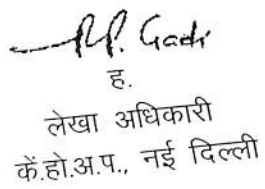 P. Gadi
ह.
लेखा अधिकारी
कें.हो.अ.प., नई दिल्ली